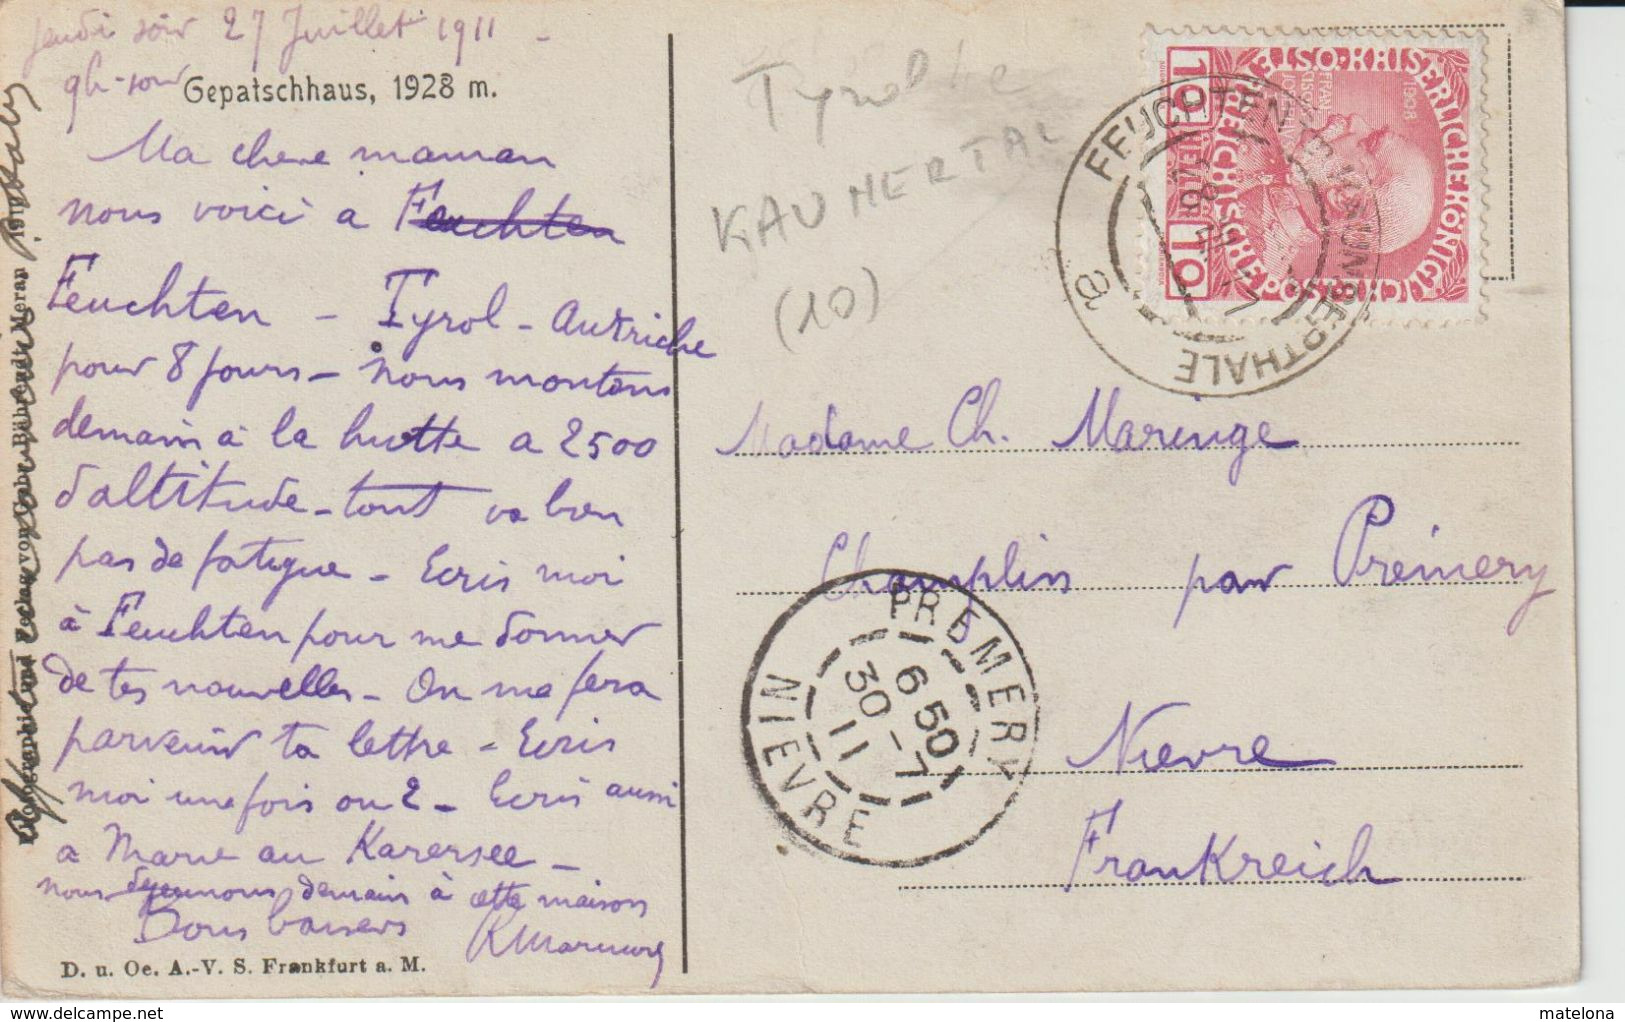 jeudi soir 27 Juillet 1911 -
9h - soir
Gepatschhaus, 1928 m.
Ma chere maman
nous voici a Feuchten
Feuchten - Tyrol - Autriche
pour 8 jours - nous montons
demain à la hutte a 2500
d'altitude - tout va bien
pas de fatigue - Ecris moi
à Feuchten pour me donner
de tes nouvelles - On me fera
parvenir ta lettre - Ecris
moi une fois ou 2 - Ecris aussi
a Marie au Karersee -
nous dejeunons demain à cette maison
Bons baisers
D. u. Oe. A.-V. S. Frankfurt a. M.
Photographie und Verlag von Gebr. Bährendt, Meran 1910
Tyrol
KAUNERTAL
(10)
1908
KAISERLICHE KÖNIGLICHE
ÖSTERREICHISCHE POST
10 HELLER 10
FEUCHTEN
KAUNSERTHALE
a
Madame Ch. Maringe
Champlin par Prémery
Nievre
Frankreich
PREMERY
6 50
30 - 7
11
NIEVRE
matelona